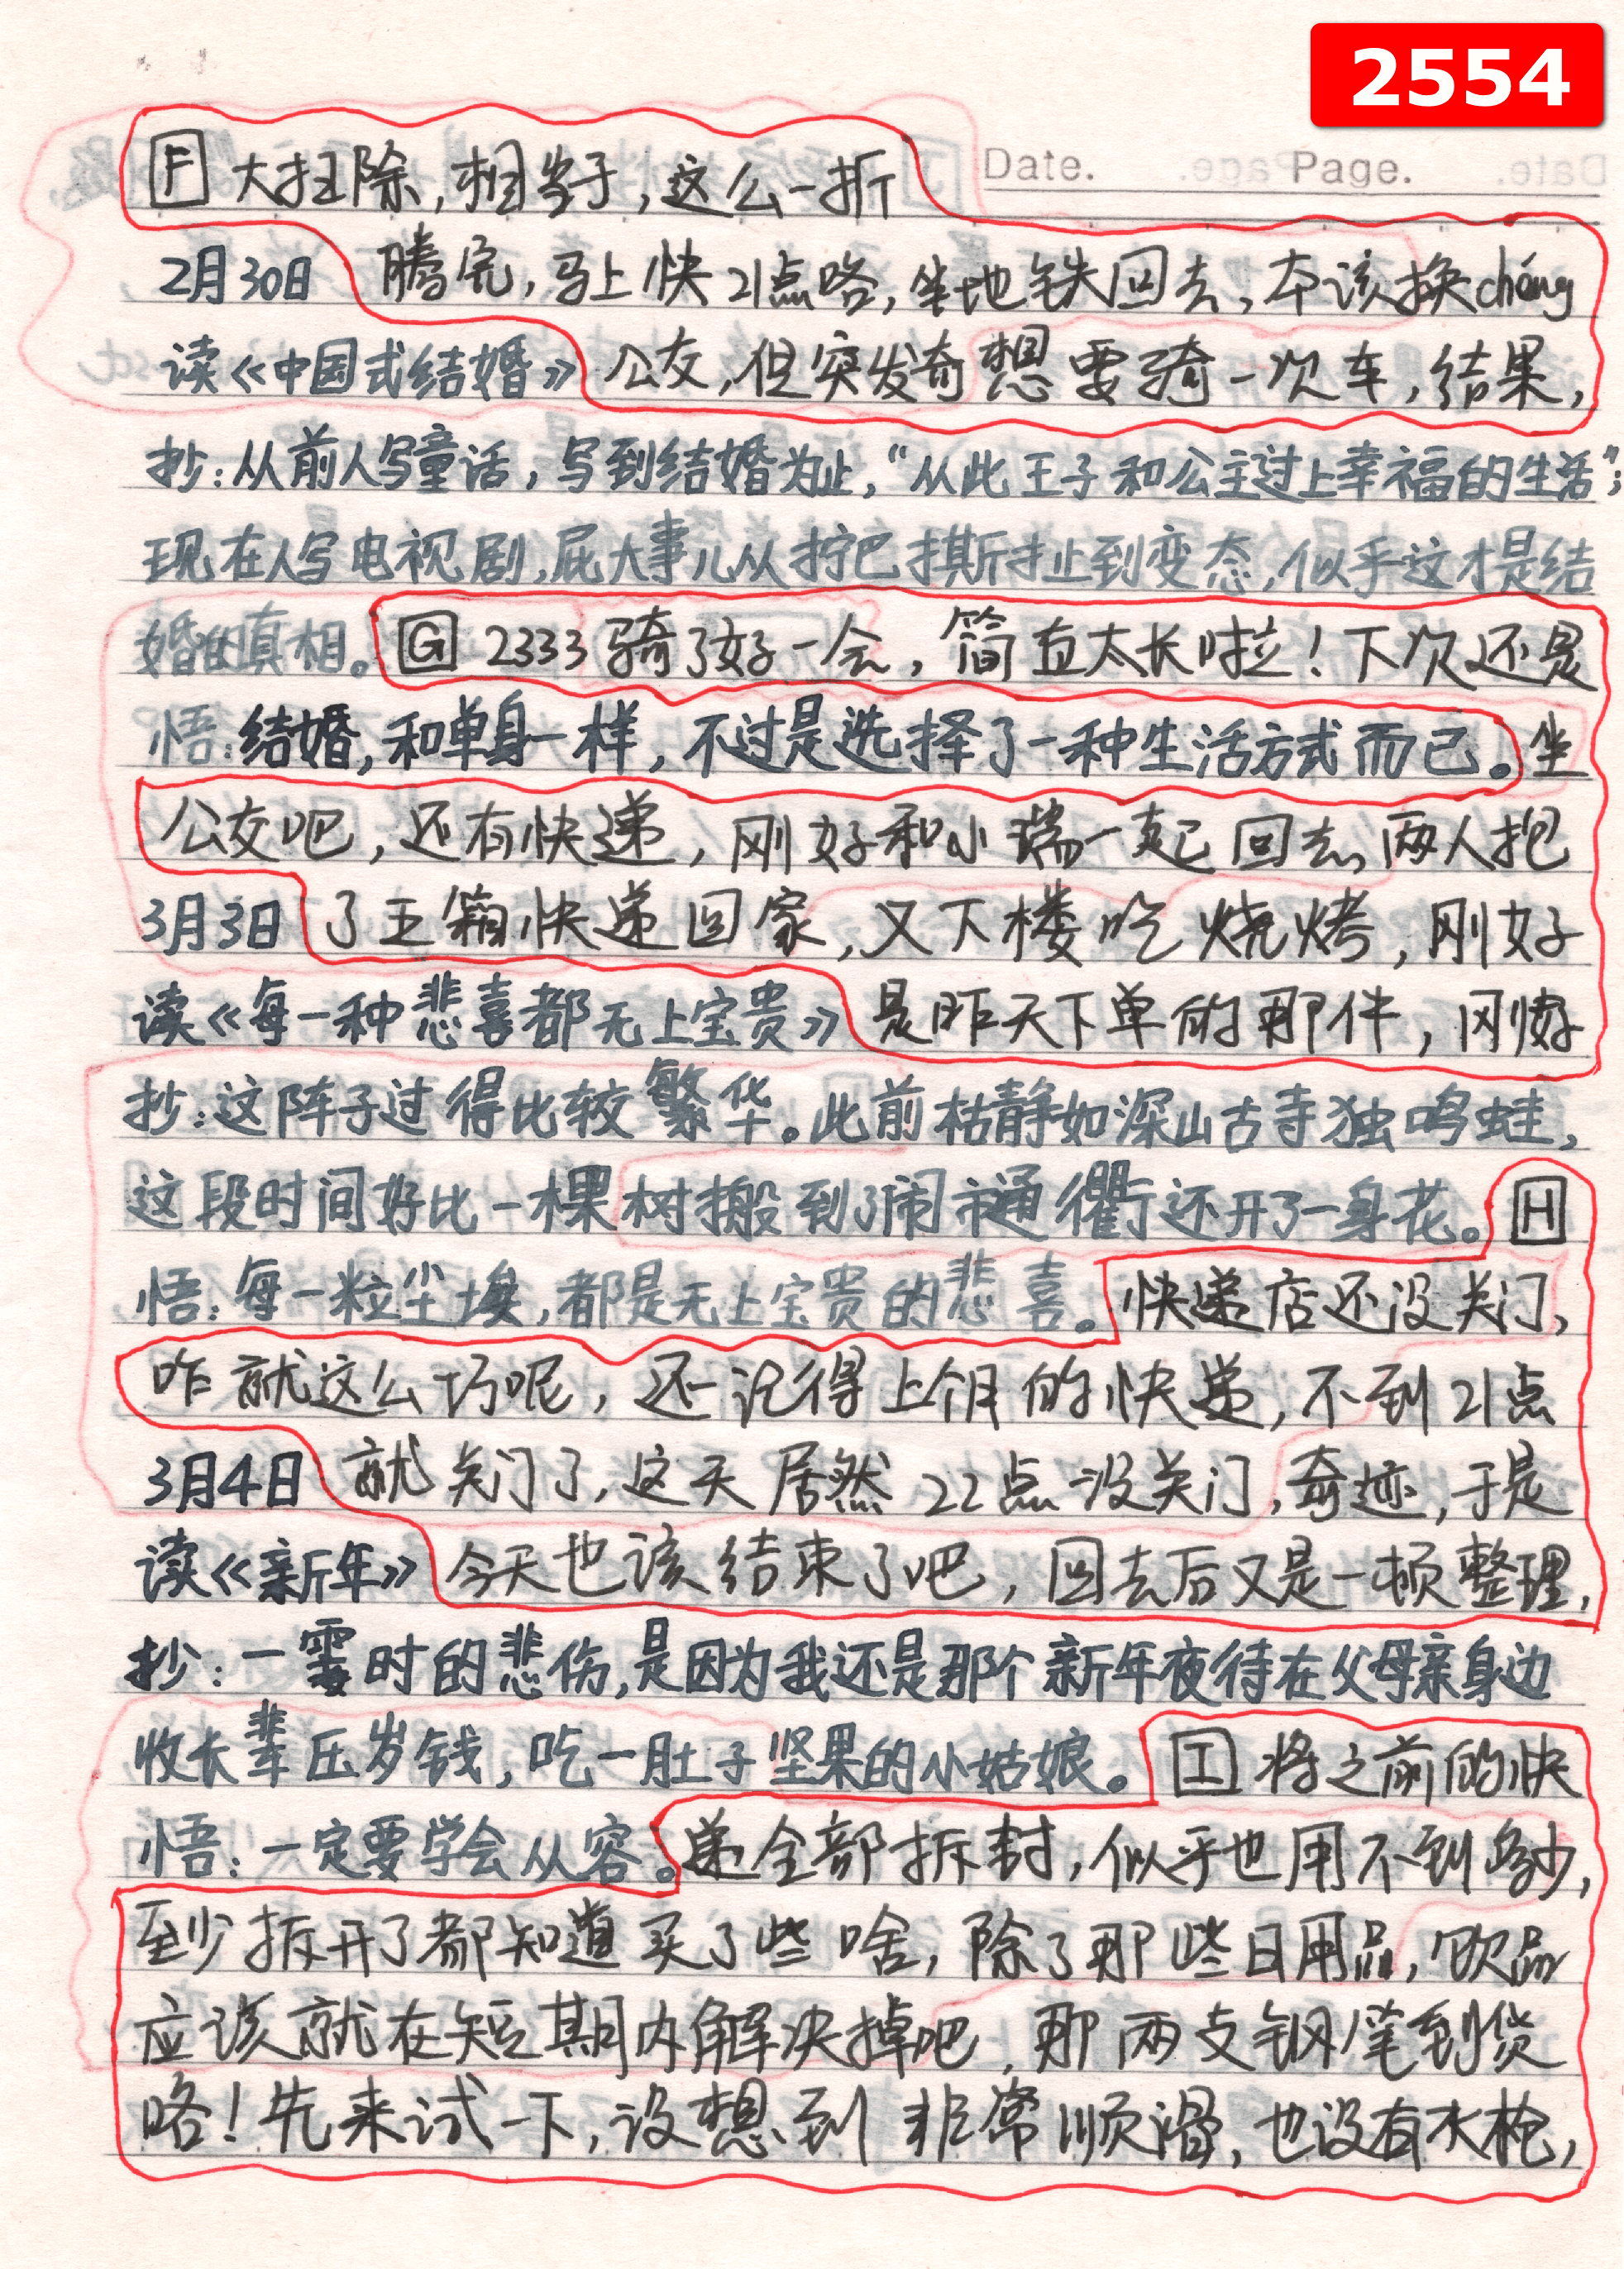 2554
Date. Page.
F 大扫除,相当于,这么一折
2月30日 腾完,马上快21点咯,坐地铁回去,本该换chéng
读《中国式结婚》公交,但突发奇想要骑一次车,结果,
抄:从前人写童话,写到结婚为止,“从此王子和公主过上幸福的生活”;
现在人写电视剧,屁大事儿从拧巴撕扯到变态,似乎这才是结
婚的真相。G 2333骑了好一会,简直太长啦!下次还是
悟:结婚,和单身一样,不过是选择了一种生活方式而已。坐
公交吧,还有快递,刚好和小瑞一起回去,两人把
3月3日 了五箱快递回家,又下楼吃烧烤,刚好
读《每一种悲喜都无上宝贵》是昨天下单的那件,刚好
抄:这阵子过得比较繁华。此前枯静如深山古寺独鸣蛙,
这段时间好比一棵树搬到了闹市通衢还开了一身花。H
悟:每一粒尘埃,都是无上宝贵的悲喜。快递店还没关门,
咋就这么巧呢,还记得上个月的快递,不到21点
3月4日 就关门了,这天居然22点没关门,奇迹,于是
读《新年》今天也该结束了吧,回去后又是一顿整理,
抄:一霎时的悲伤,是因为我还是那个新年夜待在父母亲身边
收长辈压岁钱,吃一肚子坚果的小姑娘。I 将之前的快
悟:一定要学会从容。递全部拆封,似乎也用不到多少,
至少拆开了都知道买了些啥,除了那些日用品,饮品
应该就在短期内解决掉吧,那两支钢笔到货
咯!先来试一下,没想到非常顺滑,也没有水枪,